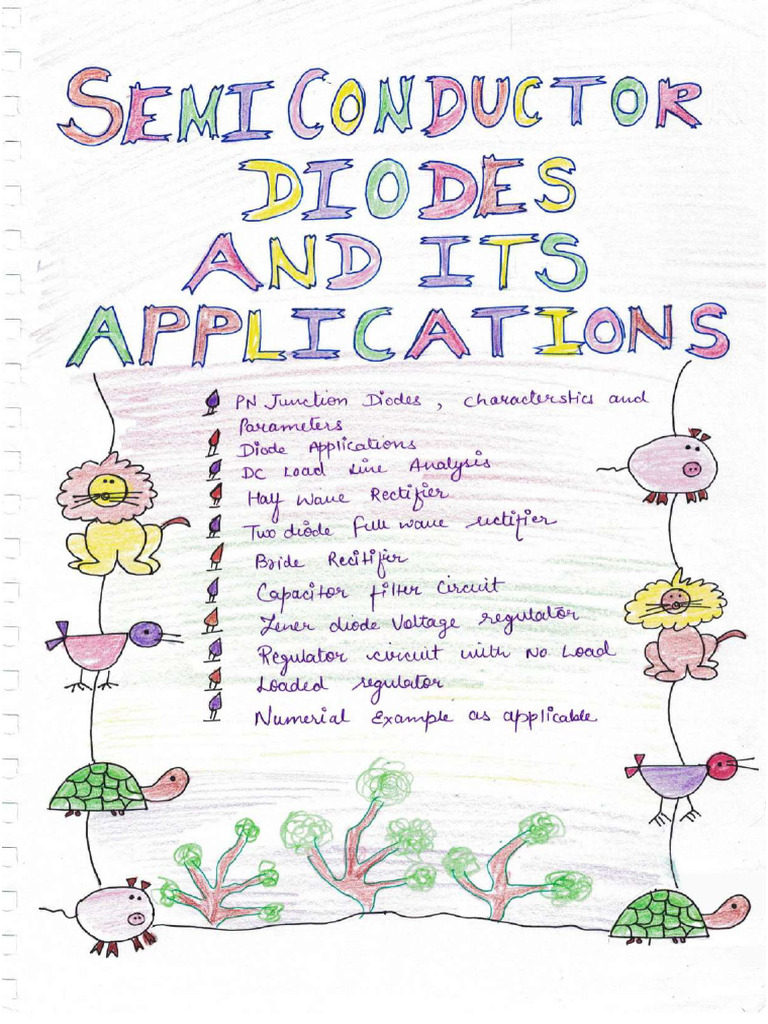 SEMI CONDUCTOR
DIODES
AND ITS
APPLICATIONS
PN Junction Diodes, characterstics and
Parameters
Diode Applications
DC Load Line Analysis
Half Wave Rectifier
Two diode full wave rectifier
Bride Recitifir
Capacitor filter Circuit
Zener diode Voltage regulator
Regulator circuit with No Load
Loaded regulator
Numerial Example as applicable